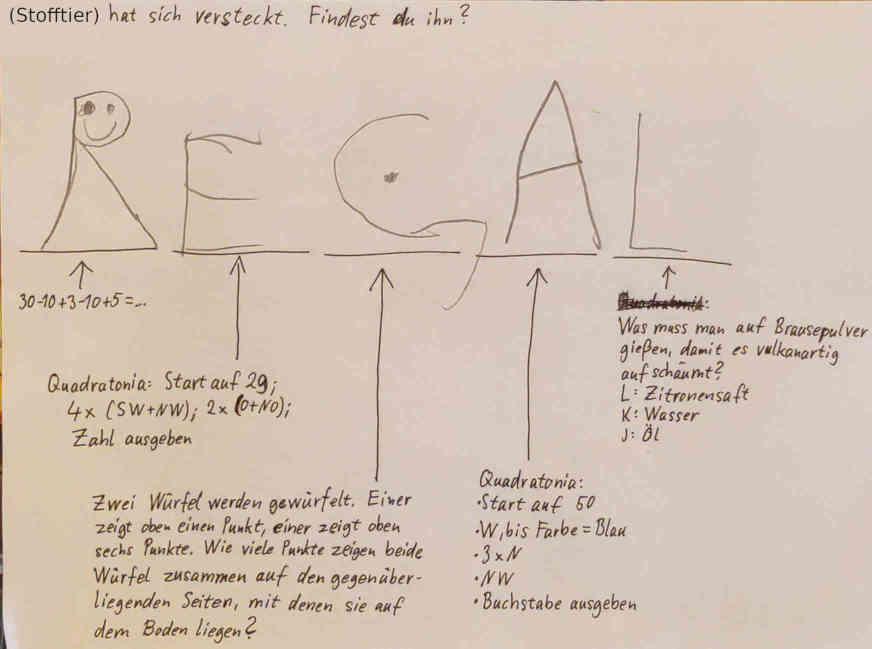 (Stofftier) hat sich versteckt. Findest du ihn?
REGAL
30-10+3-10+5=...
Quadratonia: Start auf 29;
4x (SW+NW); 2x (O+NO);
Zahl ausgeben
Zwei Würfel werden gewürfelt. Einer
zeigt oben einen Punkt, einer zeigt oben
sechs Punkte. Wie viele Punkte zeigen beide
Würfel zusammen auf den gegenüber-
liegenden Seiten, mit denen sie auf
dem Boden liegen?
Quadratonia:
•Start auf 50
•W, bis Farbe = Blau
•3xN
•NW
•Buchstabe ausgeben
Quadratonia:
Was muss man auf Brausepulver
gießen, damit es vulkanartig
aufschäumt?
L: Zitronensaft
K: Wasser
J: Öl